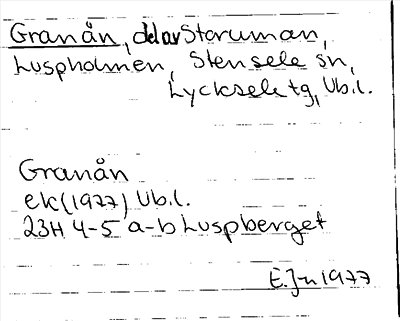 Granån, del av Storuman,
Luspholmen, Stensele sn,
Lycksele tg, Vb.l.
Granån
ek(1977) Vb.l.
23H 4-5 a-b Luspberget
E.Jn 1977